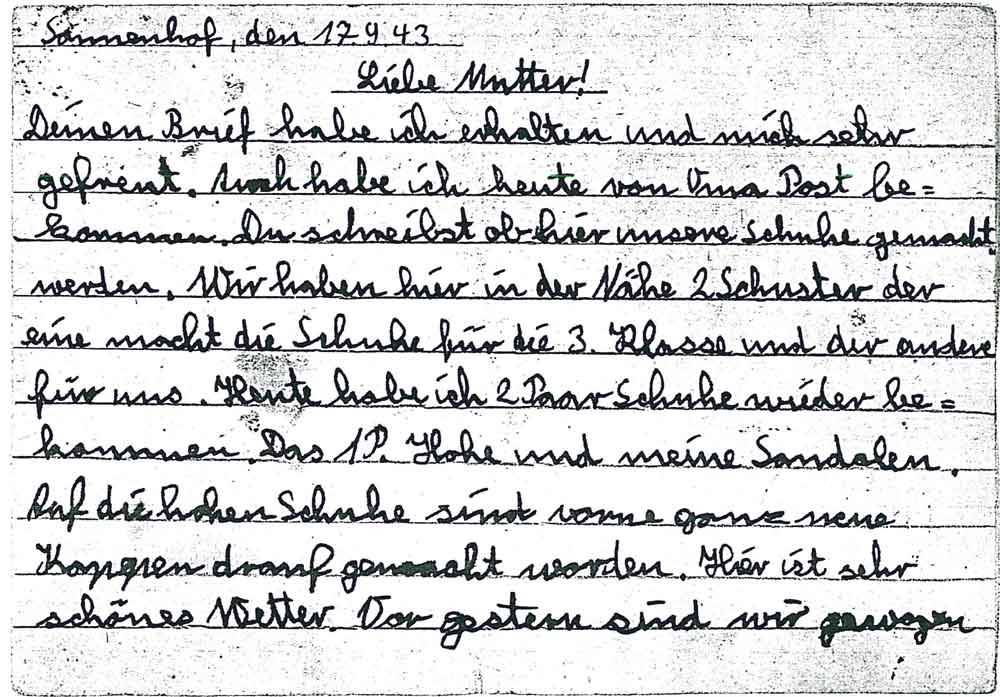 Sonnenhof, den 17.9.43
Liebe Mutter!
Deinen Brief habe ich erhalten und mich sehr
gefreut. Auch habe ich heute von Oma Post be=
kommen. Du schreibst ob hier unsere Schuhe gemacht
werden. Wir haben hier in der Nähe 2 Schuster der
eine macht die Schuhe für die 3. Klasse und der andere
für uns. Heute habe ich 2 Paar Schuhe wieder be=
kommen. Das 1P. Hohe und meine Sandalen.
Auf die hohen Schuhe sind vorne ganz neue
Kappen drauf gemacht worden. Hier ist sehr
schönes Wetter. Vor gestern sind wir gewogen